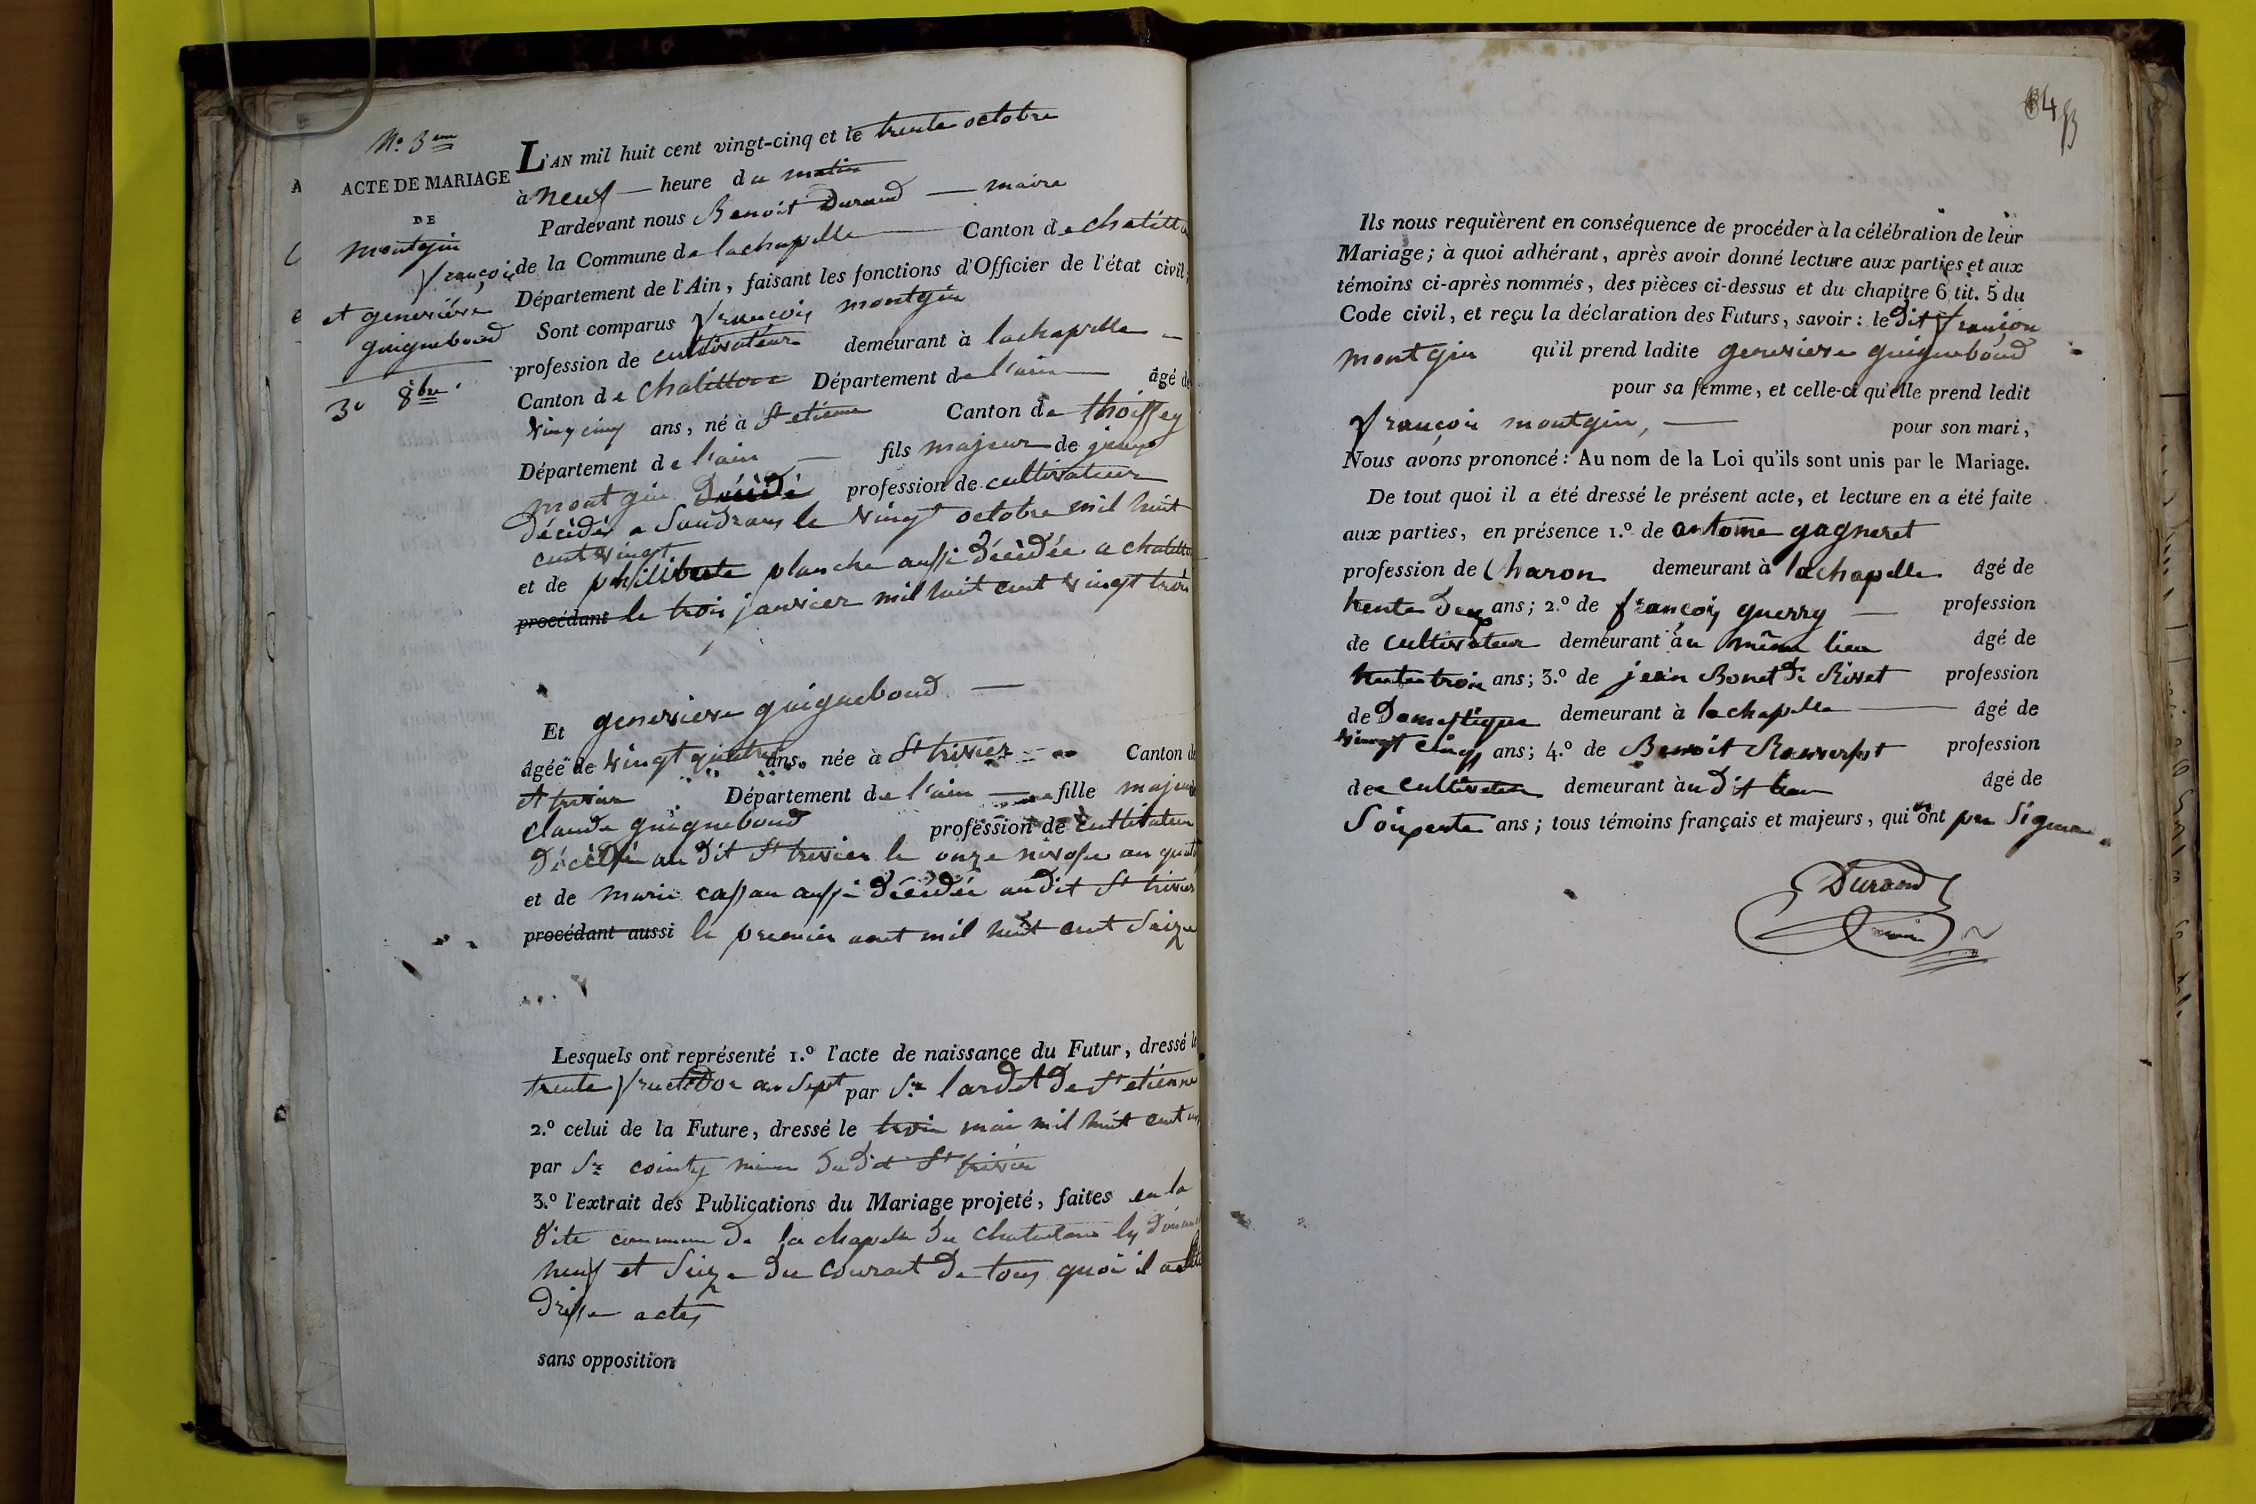 N.o 3em
ACTE DE MARIAGE
DE
montgin
françois
et genevieve
guigneboud
30 8bre
L'AN mil huit cent vingt-cinq et le trente octobre
à neuf — heure du matin
Pardevant nous Benoit Durand — maire
de la Commune de lachapelle — Canton de chatillon
Département de l'Ain, faisant les fonctions d'Officier de l'état civil,
Sont comparus françois montgin
profession de cultivateur demeurant à lachapelle —
Canton de chatillon Département de l'ain — âgé de
vingt cinq ans, né à St etienne Canton de thoissey
Département de l'ain — fils majeur de
montgin décédé profession de cultivateur
décédé a Sandrans le vingt octobre mil huit
cent vingt
et de philiberte planche aussi décédée a chatillon
procédant le trois janvier mil huit cent vingt trois
Et genevieve guigneboud —
âgée de vingt quatre ans, née à St trivier — Canton de
St trivier Département de l'ain — fille majeure
claude guigneboud profession de cultivateur
décédé au dit St trivier le onze nivose an quatre
et de marie cassau aussi décédée au dit St trivier
procédant aussi le premier aout mil huit cent Seize
Lesquels ont représenté 1.o l'acte de naissance du Futur, dressé le
trente fructidor an Sept par Sr lardet de St etienne
2.o celui de la Future, dressé le trois mai mil huit cent un
par Sr cointy maire dudit St trivier
3.o l'extrait des Publications du Mariage projeté, faites en la
dite commune de la chapelle du chatelard les dimanches
neuf et Seize du courant de tous quoi il a été
dressé actes
sans opposition
Ils nous requièrent en conséquence de procéder à la célébration de leur
Mariage; à quoi adhérant, après avoir donné lecture aux parties et aux
témoins ci-après nommés, des pièces ci-dessus et du chapitre 6 tit. 5 du
Code civil, et reçu la déclaration des Futurs, savoir: le dit françois
montgin qu'il prend ladite genevieve guigneboud
pour sa femme, et celle-ci qu'elle prend ledit
françois montgin, — pour son mari,
Nous avons prononcé: Au nom de la Loi qu'ils sont unis par le Mariage.
De tout quoi il a été dressé le présent acte, et lecture en a été faite
aux parties, en présence 1.o de antoine gagneret
profession de Charon demeurant à lachapelle âgé de
trente deux ans; 2.o de françois guerry — profession
de cultivateur demeurant au même lieu âgé de
trente trois ans; 3.o de jean Bonet de Rivet profession
de Domestique demeurant à lachapelle — âgé de
vingt cinq ans; 4.o de Benoit profession
de cultivateur demeurant au dit lieu âgé de
Soixente ans; tous témoins français et majeurs, qui ont peu Signer
Durand
maire